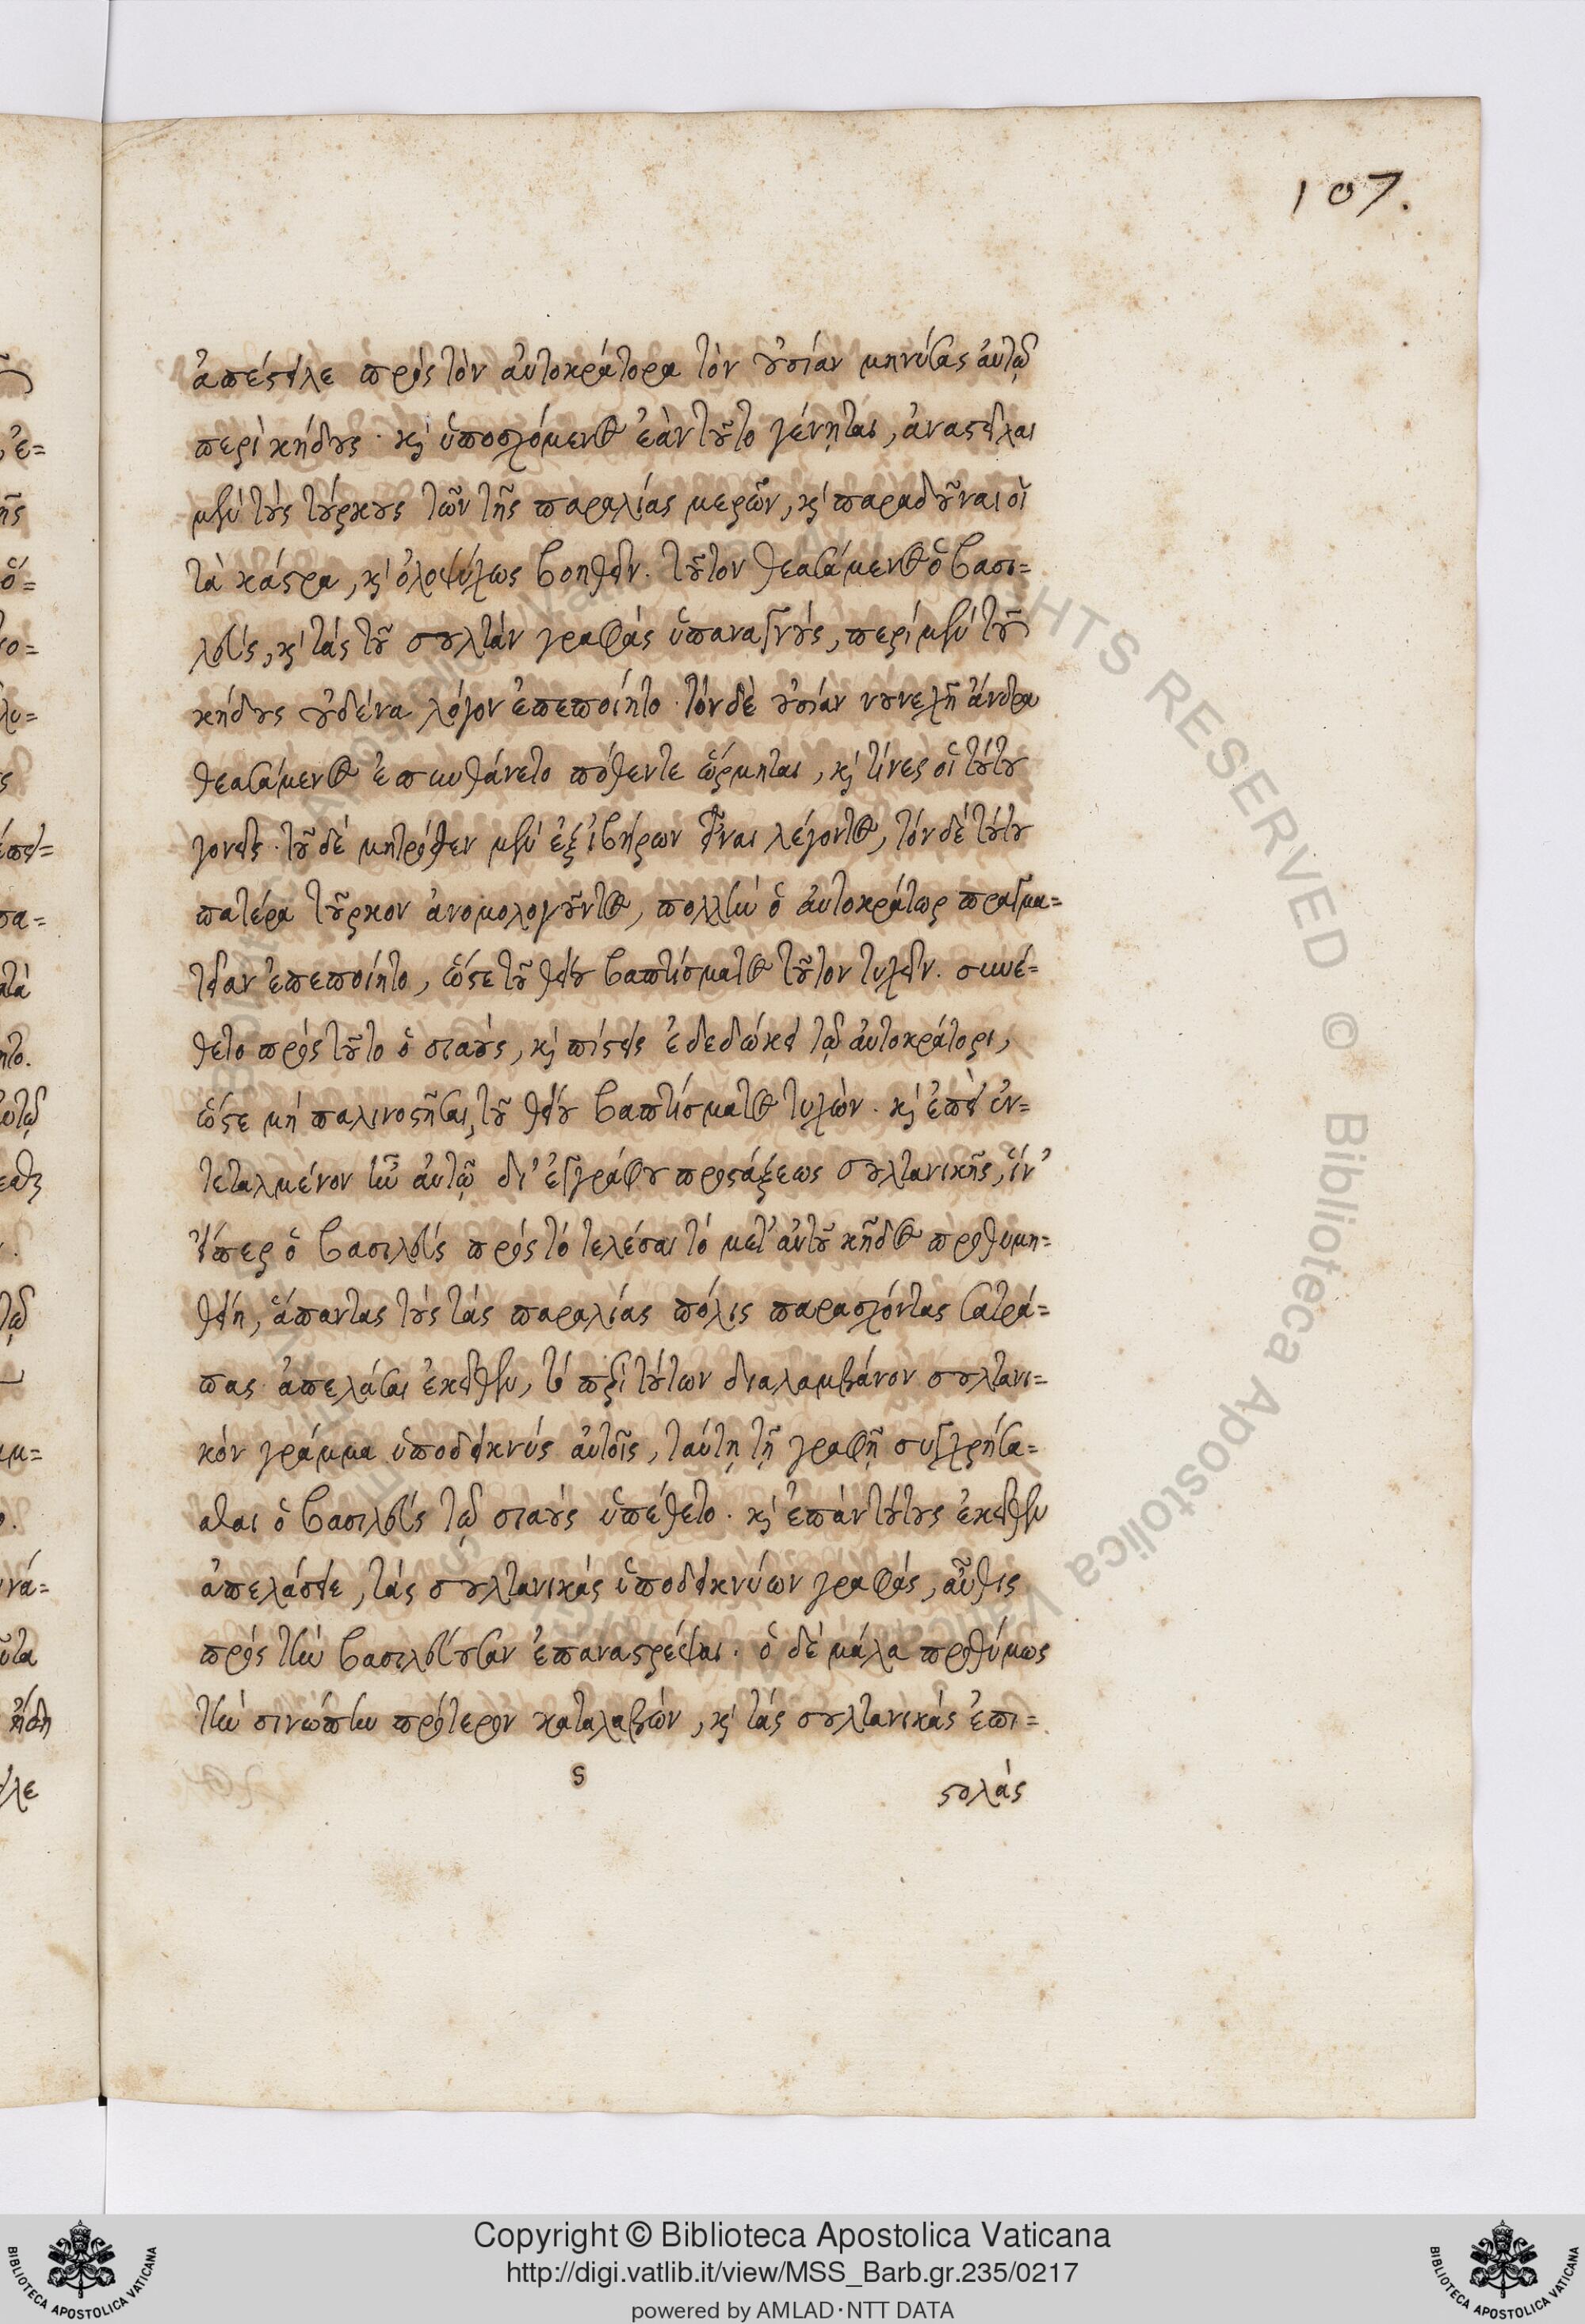 107.
ἀπέστειλε πρὸς τὸν αὐτοκράτορα τὸν σιαοὺς μηνύσας αὐτῷ
περὶ κήδους · καὶ ὑποσχόμενος ἐὰν τοῦτο γένηται, ἀναστεῖλαι
μὲν τοὺς τούρκους τῶν τῆς παραλίας μερῶν, καὶ παραδοῦναι οἷ
τὰ κάστρα, καὶ ὁλοψύχως βοηθεῖν. τοῦτον θεασάμενος ὁ βασι=
λεὺς, καὶ τὰς τοῦ σουλτὰν γραφὰς ὑπαναγνοὺς, περὶ μὲν τοῦ
κήδους οὐδένα λόγον ἐπεποίητο · τὸν δὲ νουνεχῆ ἄνδρα
θεασάμενος ἐπυνθάνετο πόθεν τε ὥρμηται, καὶ τίνες οἱ τούτου
γονεῖς · τοῦ δὲ μητρόθεν μὲν ἐξ ἰβήρων εἶναι λέγοντος, τὸν δὲ τούτου
πατέρα τοῦρκον ἀνομολογοῦντος, πολλὴν ὁ αὐτοκράτωρ πραγμα=
τείαν ἐπεποίητο, ὥστε τοῦ θείου βαπτίσματος τοῦτον τυχεῖν. συνέ=
θετο πρὸς τοῦτο ὁ σιαοὺς, καὶ πίστεις ἐδεδώκει τῷ αὐτοκράτορι,
ὥστε μὴ παλινοστῆσαι, τοῦ θείου βαπτίσματος τυχὼν. καὶ ἐπεὶ ἐν=
τεταλμένον ἦν αὐτῷ δι' ἐγγράφου προστάξεως σουλτανικῆς, ἵν'
εἴπερ ὁ βασιλεὺς πρὸς τὸ τελέσαι τὸ μετ' αὐτοῦ κῆδος προθυμη=
θείη, ἅπαντας τοὺς τὰς παραλίας πόλις παρασχόντας σατρά=
πας ἀπελάσαι ἐκεῖθεν, τὸ περὶ τούτων διαλαμβάνον σουλτανι=
κὸν γράμμα ὑποδεικνὺς αὐτοῖς, ταύτῃ τῇ γραφῇ συγχρήσα=
σθαι ὁ βασιλεὺς τῷ σιαοὺς ὑπέθετο · καὶ ἐπὰν τούτους ἐκεῖθεν
ἀπελάσειε, τὰς σουλτανικὰς ὑποδεικνύων γραφάς, αὖθις
πρὸς τὴν βασιλεύουσαν ἐπαναστρέψαι · ὁ δὲ μάλα προθύμως
τὴν σινώπην πρότερον καταλαβὼν, καὶ τὰς σουλτανικὰς ἐπι=
στολὰς
Copyright © Biblioteca Apostolica Vaticana
http://digi.vatlib.it/view/MSS_Barb.gr.235/0217
powered by AMLAD·NTT DATA